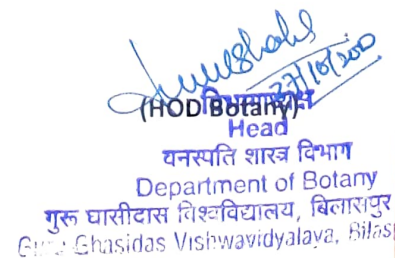 (HOD Botany)
विभागाध्यक्ष
Head
वनस्पति शास्त्र विभाग
Department of Botany
गुरू घासीदास विश्वविद्यालय, बिलासपुर
Guru Ghasidas Vishwavidyalaya, Bilas